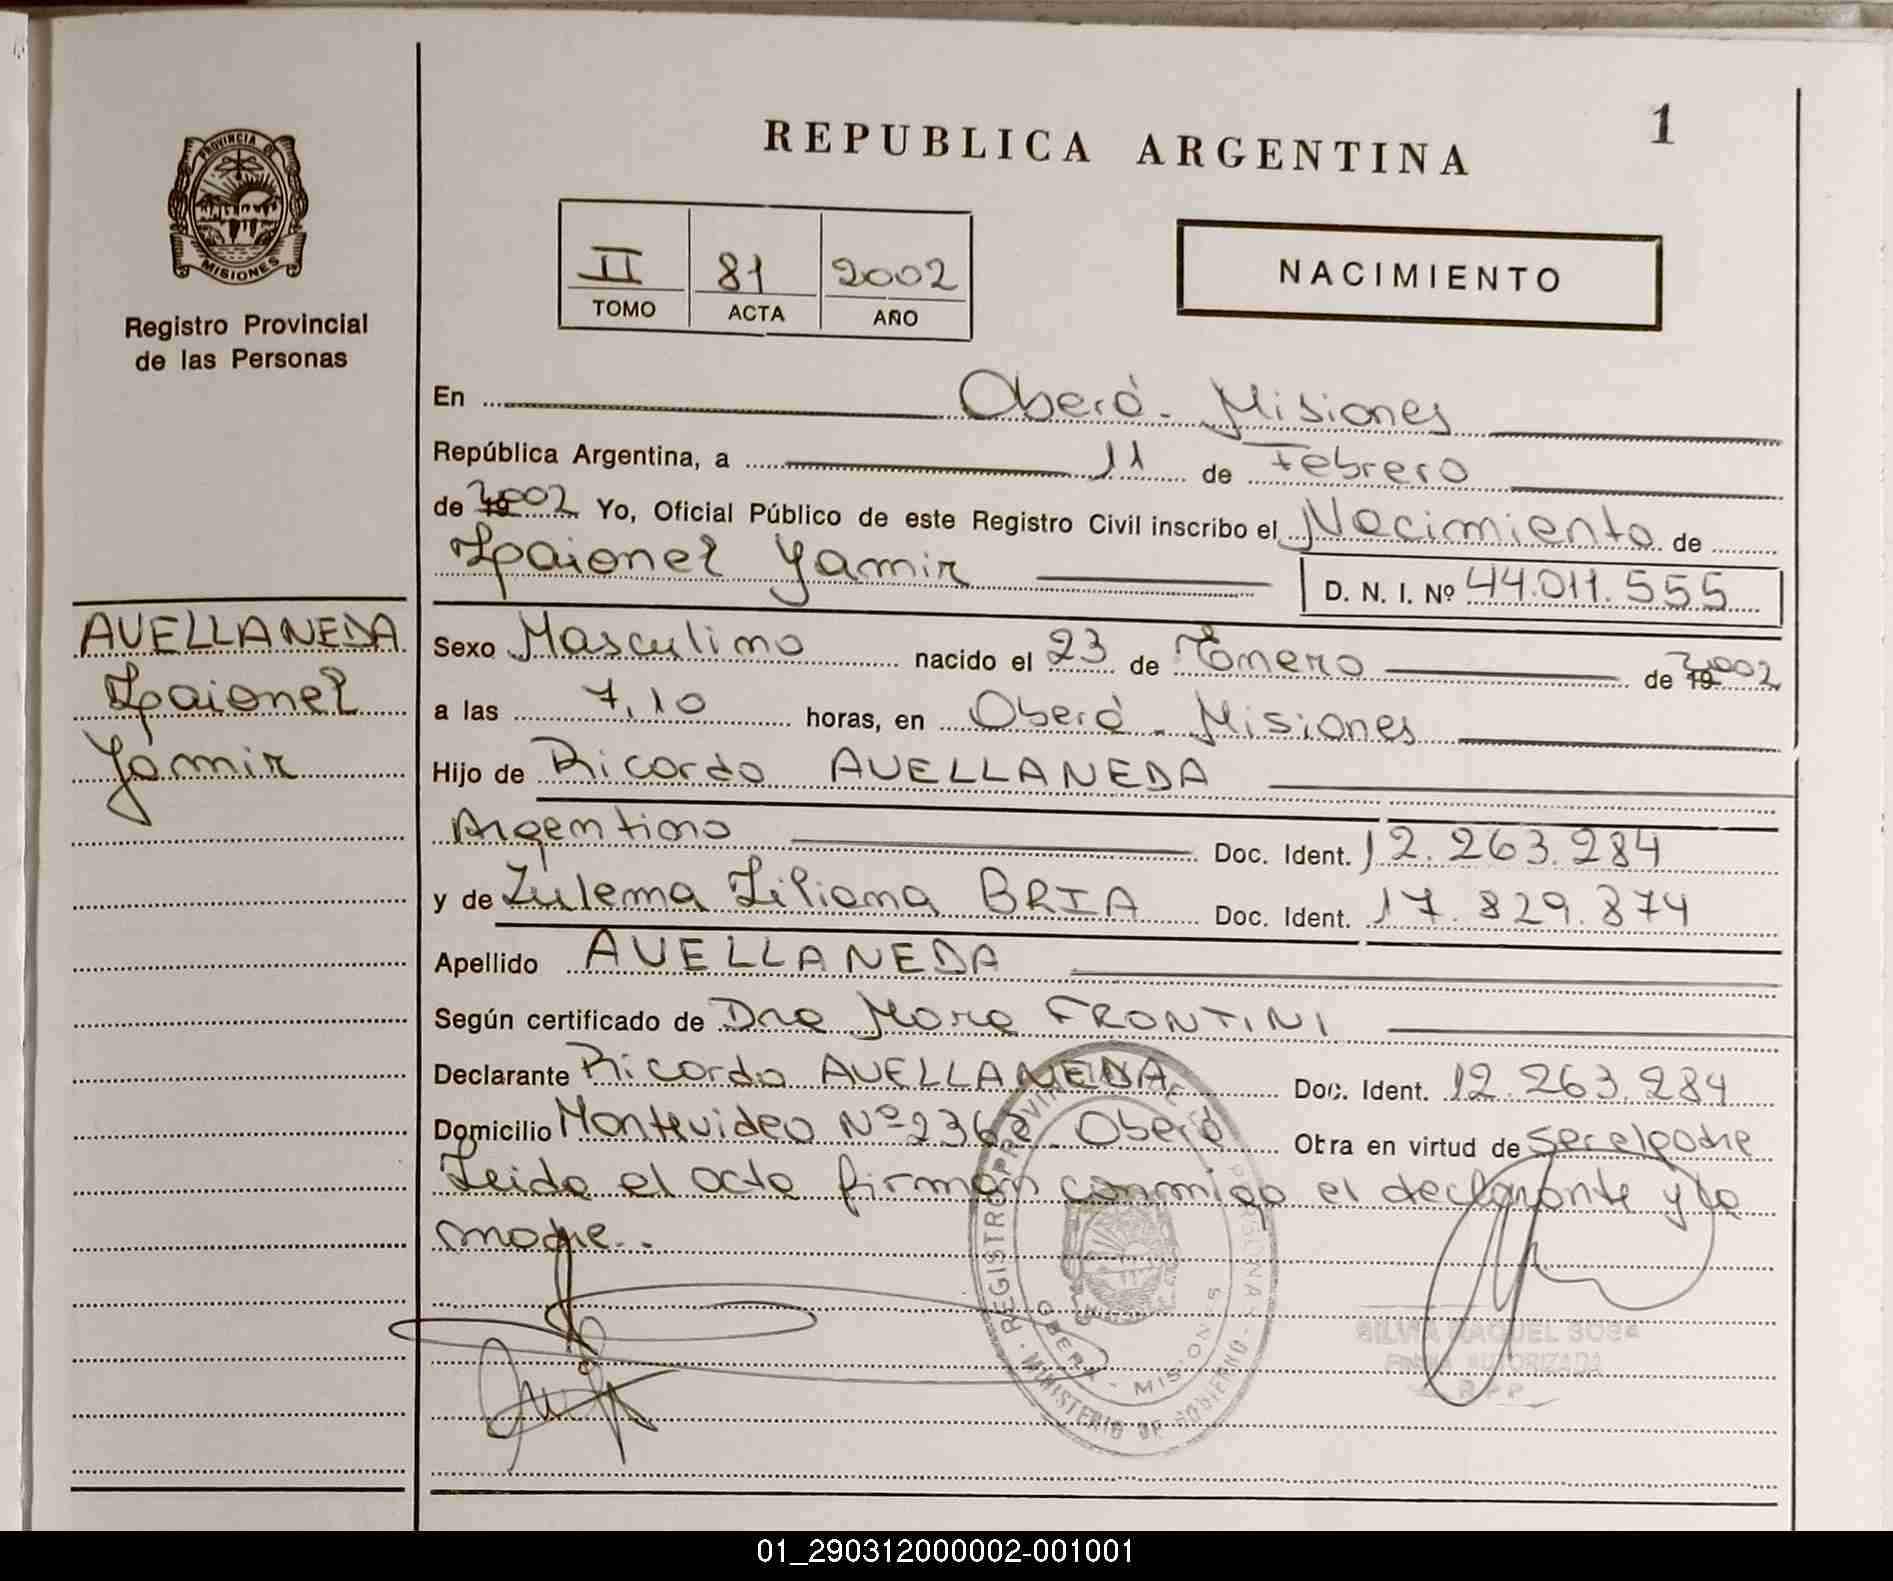 PROVINCIA DE
MISIONES
Registro Provincial
de las Personas
AVELLANEDA
Ipaionel
Yamir
REPUBLICA ARGENTINA
1
II 81 2002
TOMO ACTA AÑO
NACIMIENTO
En Oberá - Misiones
República Argentina, a 11 de Febrero
de 19 2002 Yo, Oficial Público de este Registro Civil inscribo el Nacimiento de
Ipaionel Yamir D. N. I. Nº 44.011.555
Sexo Masculino nacido el 23 de Enero de 19 2002
a las 7,10 horas, en Oberá - Misiones
Hijo de Ricardo AVELLANEDA
Argentino Doc. Ident. 12.263.284
y de Zulema Liliana BRIA Doc. Ident. 17.829.874
Apellido AVELLANEDA
Según certificado de Dra Mara FRONTINI
Declarante Ricardo AVELLANEDA Doc. Ident. 12.263.284
Domicilio Montevideo Nº 2362 Oberá Obra en virtud de ser el padre
Leida el acta firman conmigo el declarante y la
madre.
REGISTRO PROVINCIAL DE LAS PERSONAS - MINISTERIO DE GOBIERNO -
OBERA - MISIONES
SILVIA RAQUEL SOSA
FIRMA AUTORIZADA
01_290312000002-001001